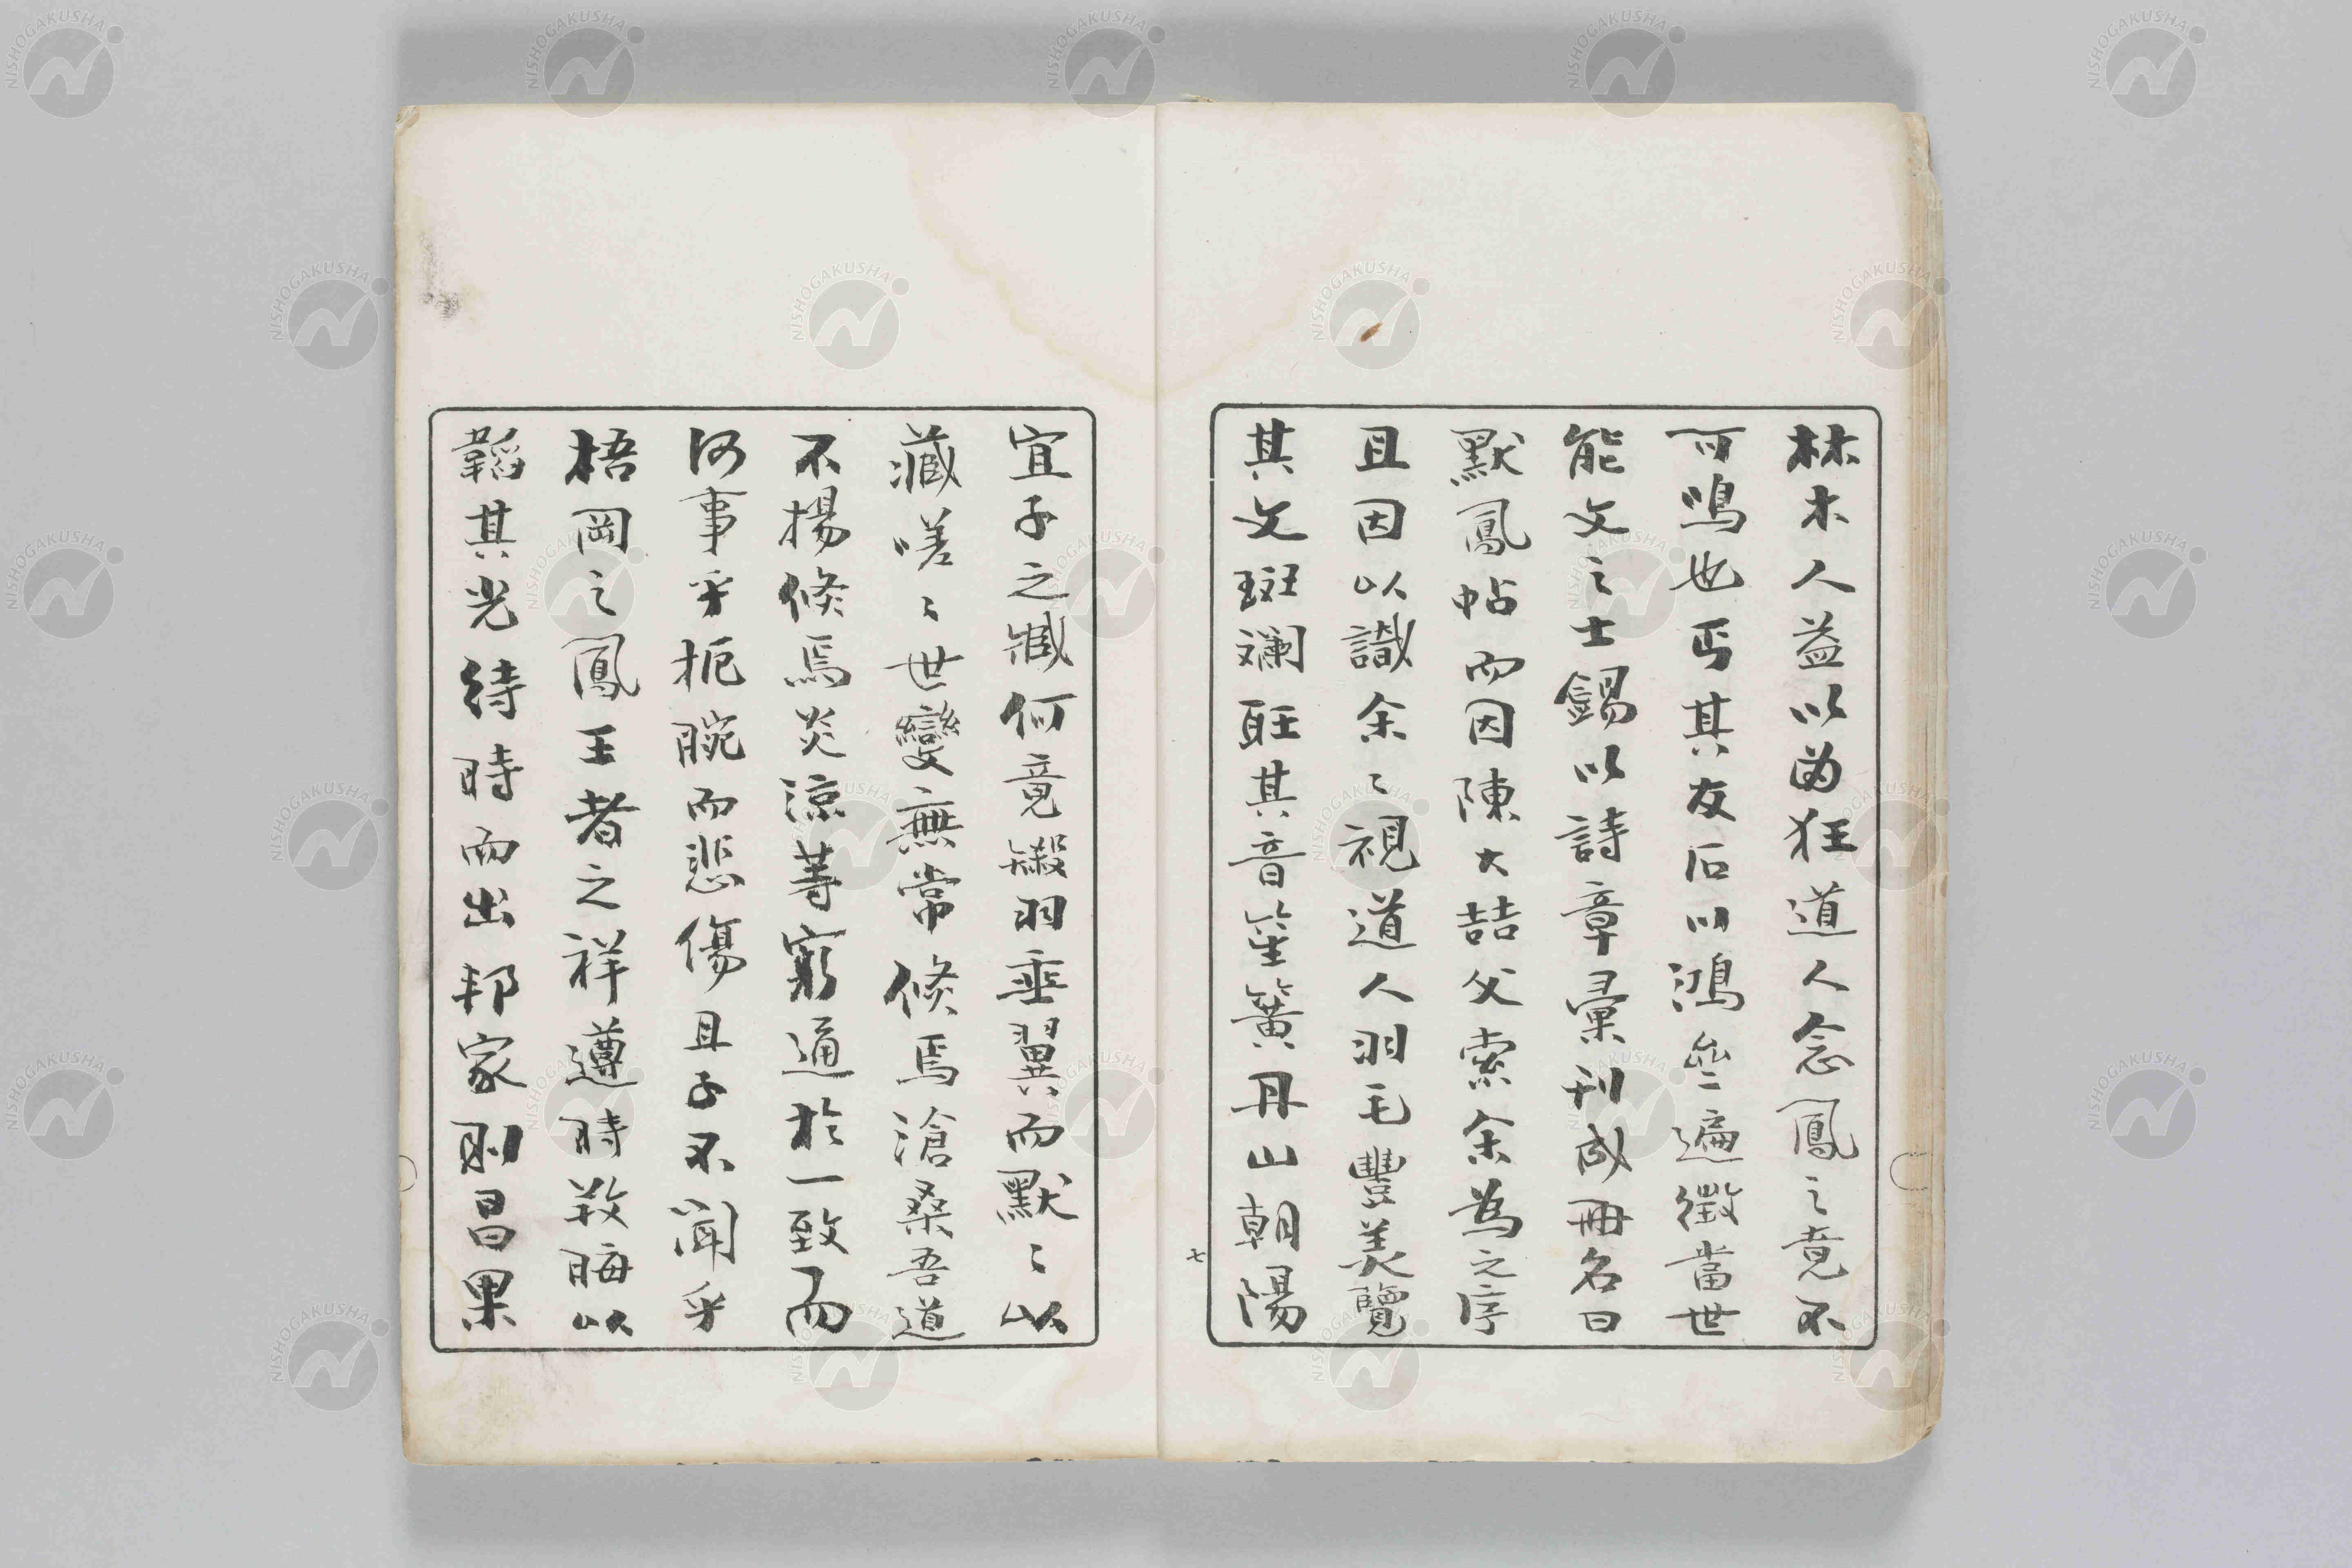 林木人益以為狂道人念鳳之竟不
可鳴也丐其友后以鴻無遍徵當世
能文之士錫以詩章彙刊成冊名曰
默鳳帖而因陳大喆父索余為之序
且因以識余〻視道人羽毛豐美覽
其文斑斕旺其音笙簧丹山朝陽
七
宜子之臧何竟鎩羽垂翼而默〻以
藏嗟〻世變無常倐焉滄桑吾道
不揚倐焉炎涼等窮通於一致而
何事乎扼腕而悲傷且子不聞乎
梧岡之鳳王者之祥遵時救晦以
韜其光待時而出邦家則昌果
NISHOGAKUSHA